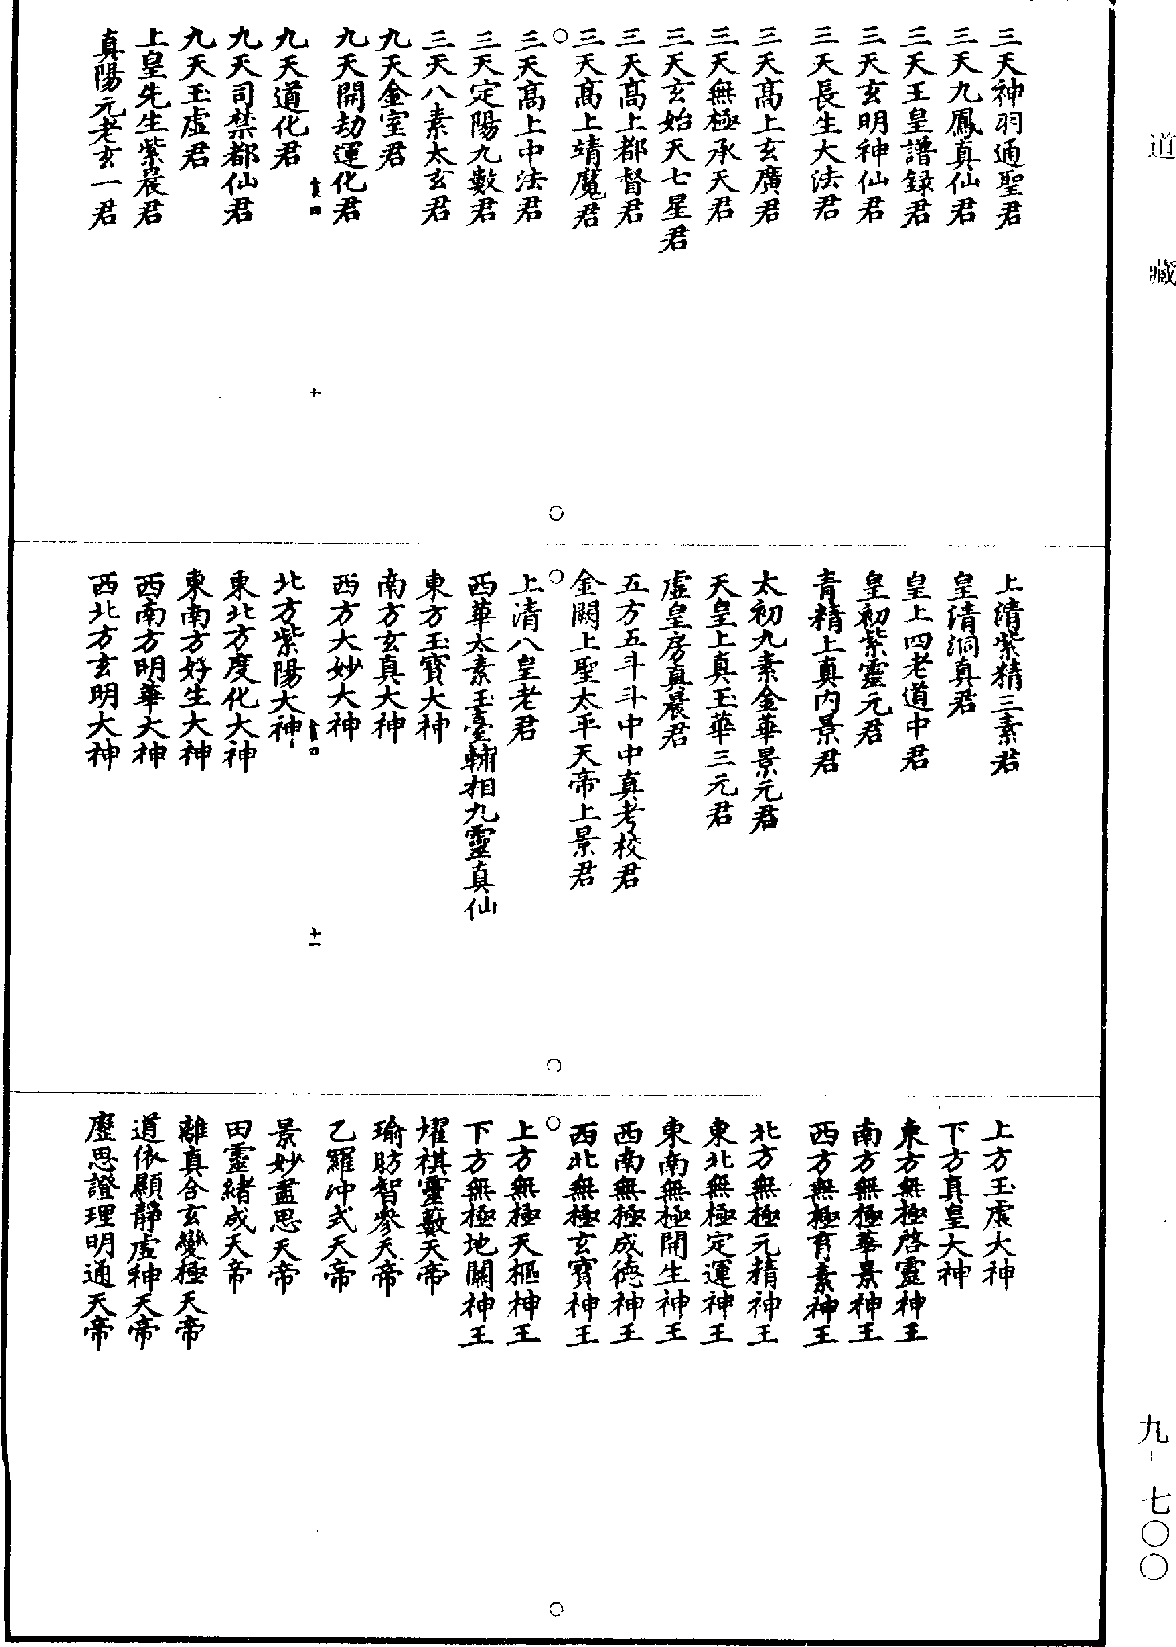 道藏
三天神羽通聖君
三天九鳳真仙君
三天王皇譜錄君
三天玄明神仙君
三天長生大法君
三天高上玄廣君
三天無極承天君
三天玄始天七星君
三天高上都督君
三天高上靖魔君
三天高上中法君
三天定陽九數君
三天八素太玄君
九天金室君
九天開劫運化君
十
九天道化君
九天司禁都仙君
九天玉虛君
上皇先生紫晨君
真陽元老玄一君
上清紫精三素君
皇清洞真君
皇上四老道中君
皇初紫靈元君
青精上真內景君
太初九素金華景元君
天皇上真玉華三元君
虛皇房真晨君
五方五斗斗中中真考校君
金闕上聖太平天帝上景君
上清八皇老君
西華太素玉臺輔相九靈真仙
東方玉寶大神
南方玄真大神
西方大妙大神
十一
北方紫陽大神
東北方度化大神
東南方好生大神
西南方明華大神
西北方玄明大神
上方玉虛大神
下方真皇大神
東方無極啓靈神王
南方無極華景神王
西方無極育素神王
北方無極元精神王
東北無極定運神王
東南無極開生神王
西南無極成德神王
西北無極玄寶神王
上方無極天樞神王
下方無極地關神王
燿祺靈數天帝
瑜昉智參天帝
乙羅冲式天帝
景妙盡思天帝
田靈緒成天帝
離真合玄變極天帝
道依顯靜虛神天帝
歷思證理明通天帝
九-七〇〇